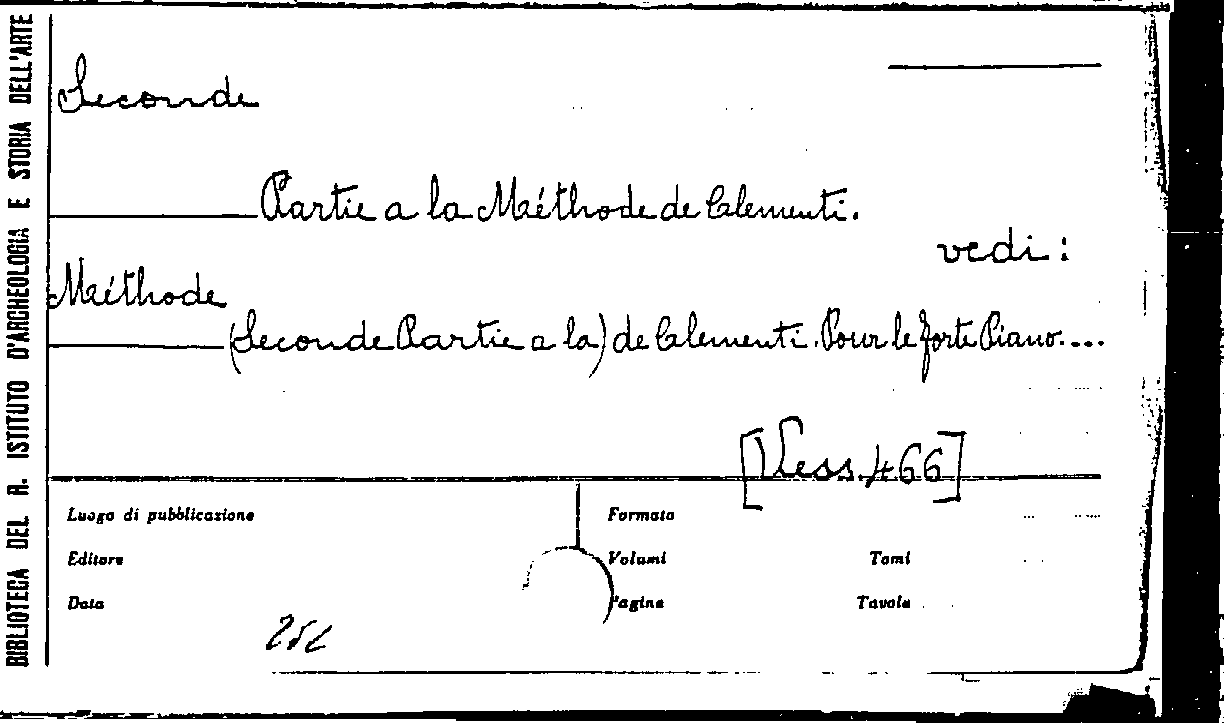 BIBLIOTECA DEL R. ISTITUTO D'ARCHEOLOGIA E STORIA DELL'ARTE
Seconde
Partie a la Méthode de Clementi.
vedi:
Méthode
(Seconde Partie a la) de Clementi. Pour le forte Piano....
[Vess. 466]
Luogo di pubblicazione
Formato
Editore
Volumi
Tomi
Data
Pagine
Tavole